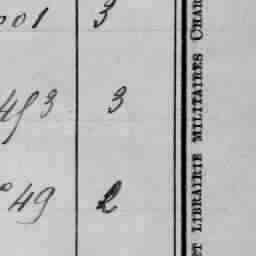 001 3
493 3
° 49 2
ET LIBRAIRIE MILITAIRES CHAR